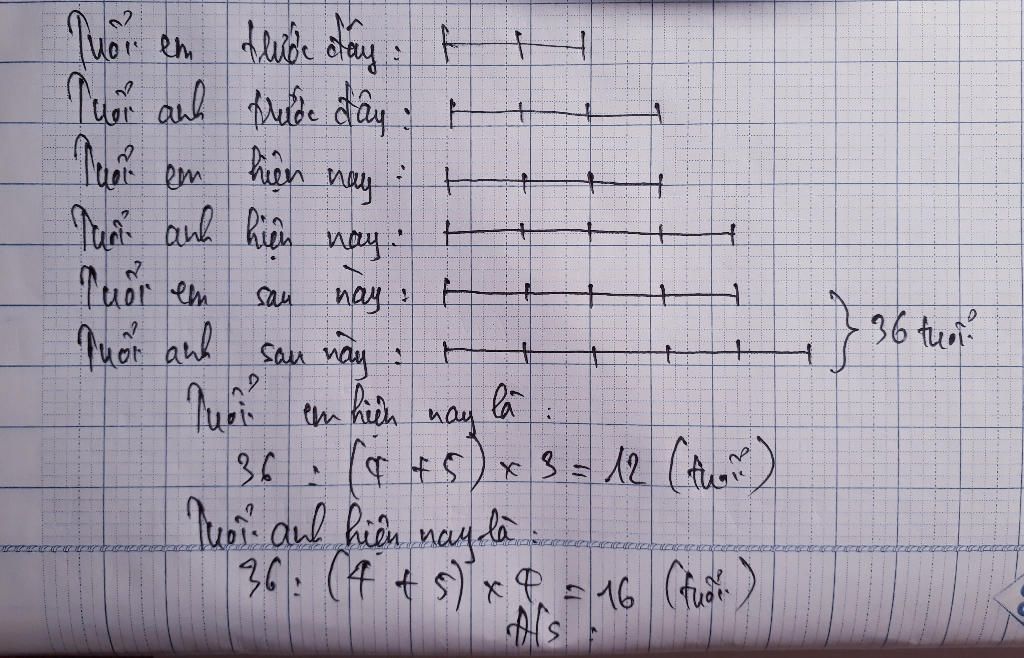 Tuổi em trước đây :
Tuổi anh trước đây :
Tuổi em hiện nay :
Tuổi anh hiện nay :
Tuổi em sau này :
Tuổi anh sau này :
36 tuổi
Tuổi em hiện nay là :
36 : (4 + 5) x 3 = 12 (tuổi)
Tuổi anh hiện nay là :
36 : (4 + 5) x 4 = 16 (tuổi)
Đ/s :